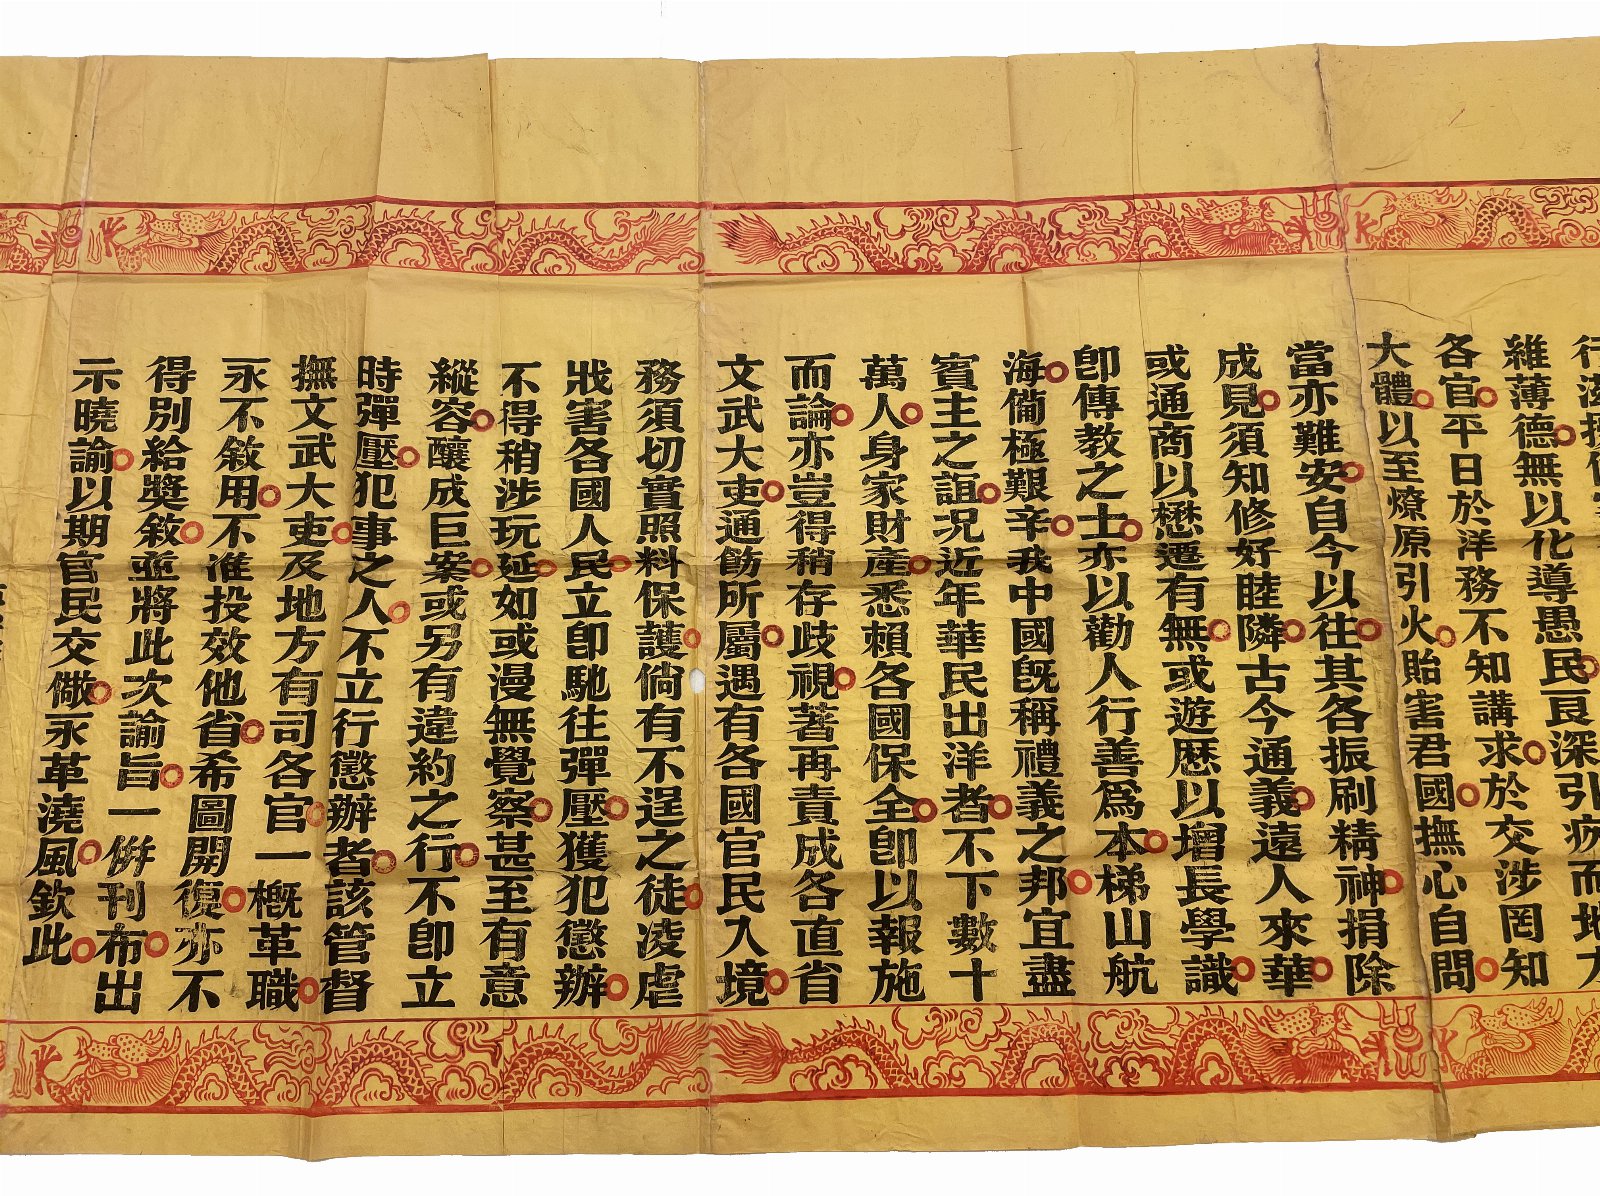 維薄德無以化導愚民良深引疚而地
各官平日於洋務不知講求於交涉罔知
大體以至燎原引火貽害君國撫心自問
當亦難安自今以往其各振刷精神捐除
成見須知修好睦隣古今通義遠人來華
或通商以懋遷有無或遊歷以增長學識
卽傳教之士亦以勸人行善爲本梯山航
海備極艱辛我中國旣稱禮義之邦宜盡
賓主之誼况近年華民出洋者不下數十
萬人身家財產悉賴各國保全卽以報施
而論亦豈得稍存歧視著再責成各直省
文武大吏通飭所屬遇有各國官民入境
務須切實照料保護倘有不逞之徒凌虐
戕害各國人民立卽馳往彈壓獲犯懲辦
不得稍涉玩延如或漫無覺察甚至有意
縱容釀成巨案或另有違約之行不卽立
時彈壓犯事之人不立行懲辦者該管督
撫文武大吏及地方有司各官一槪革職
永不敘用不准投效他省希圖開復亦不
得別給獎敘並將此次諭旨一併刊布出
示曉諭以期官民交儆永革澆風欽此